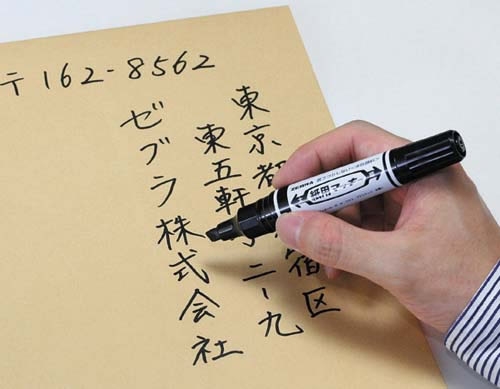 〒162-8562
東京都宿区
東五軒二ー九
ゼブラ株式会社
ZEBRA